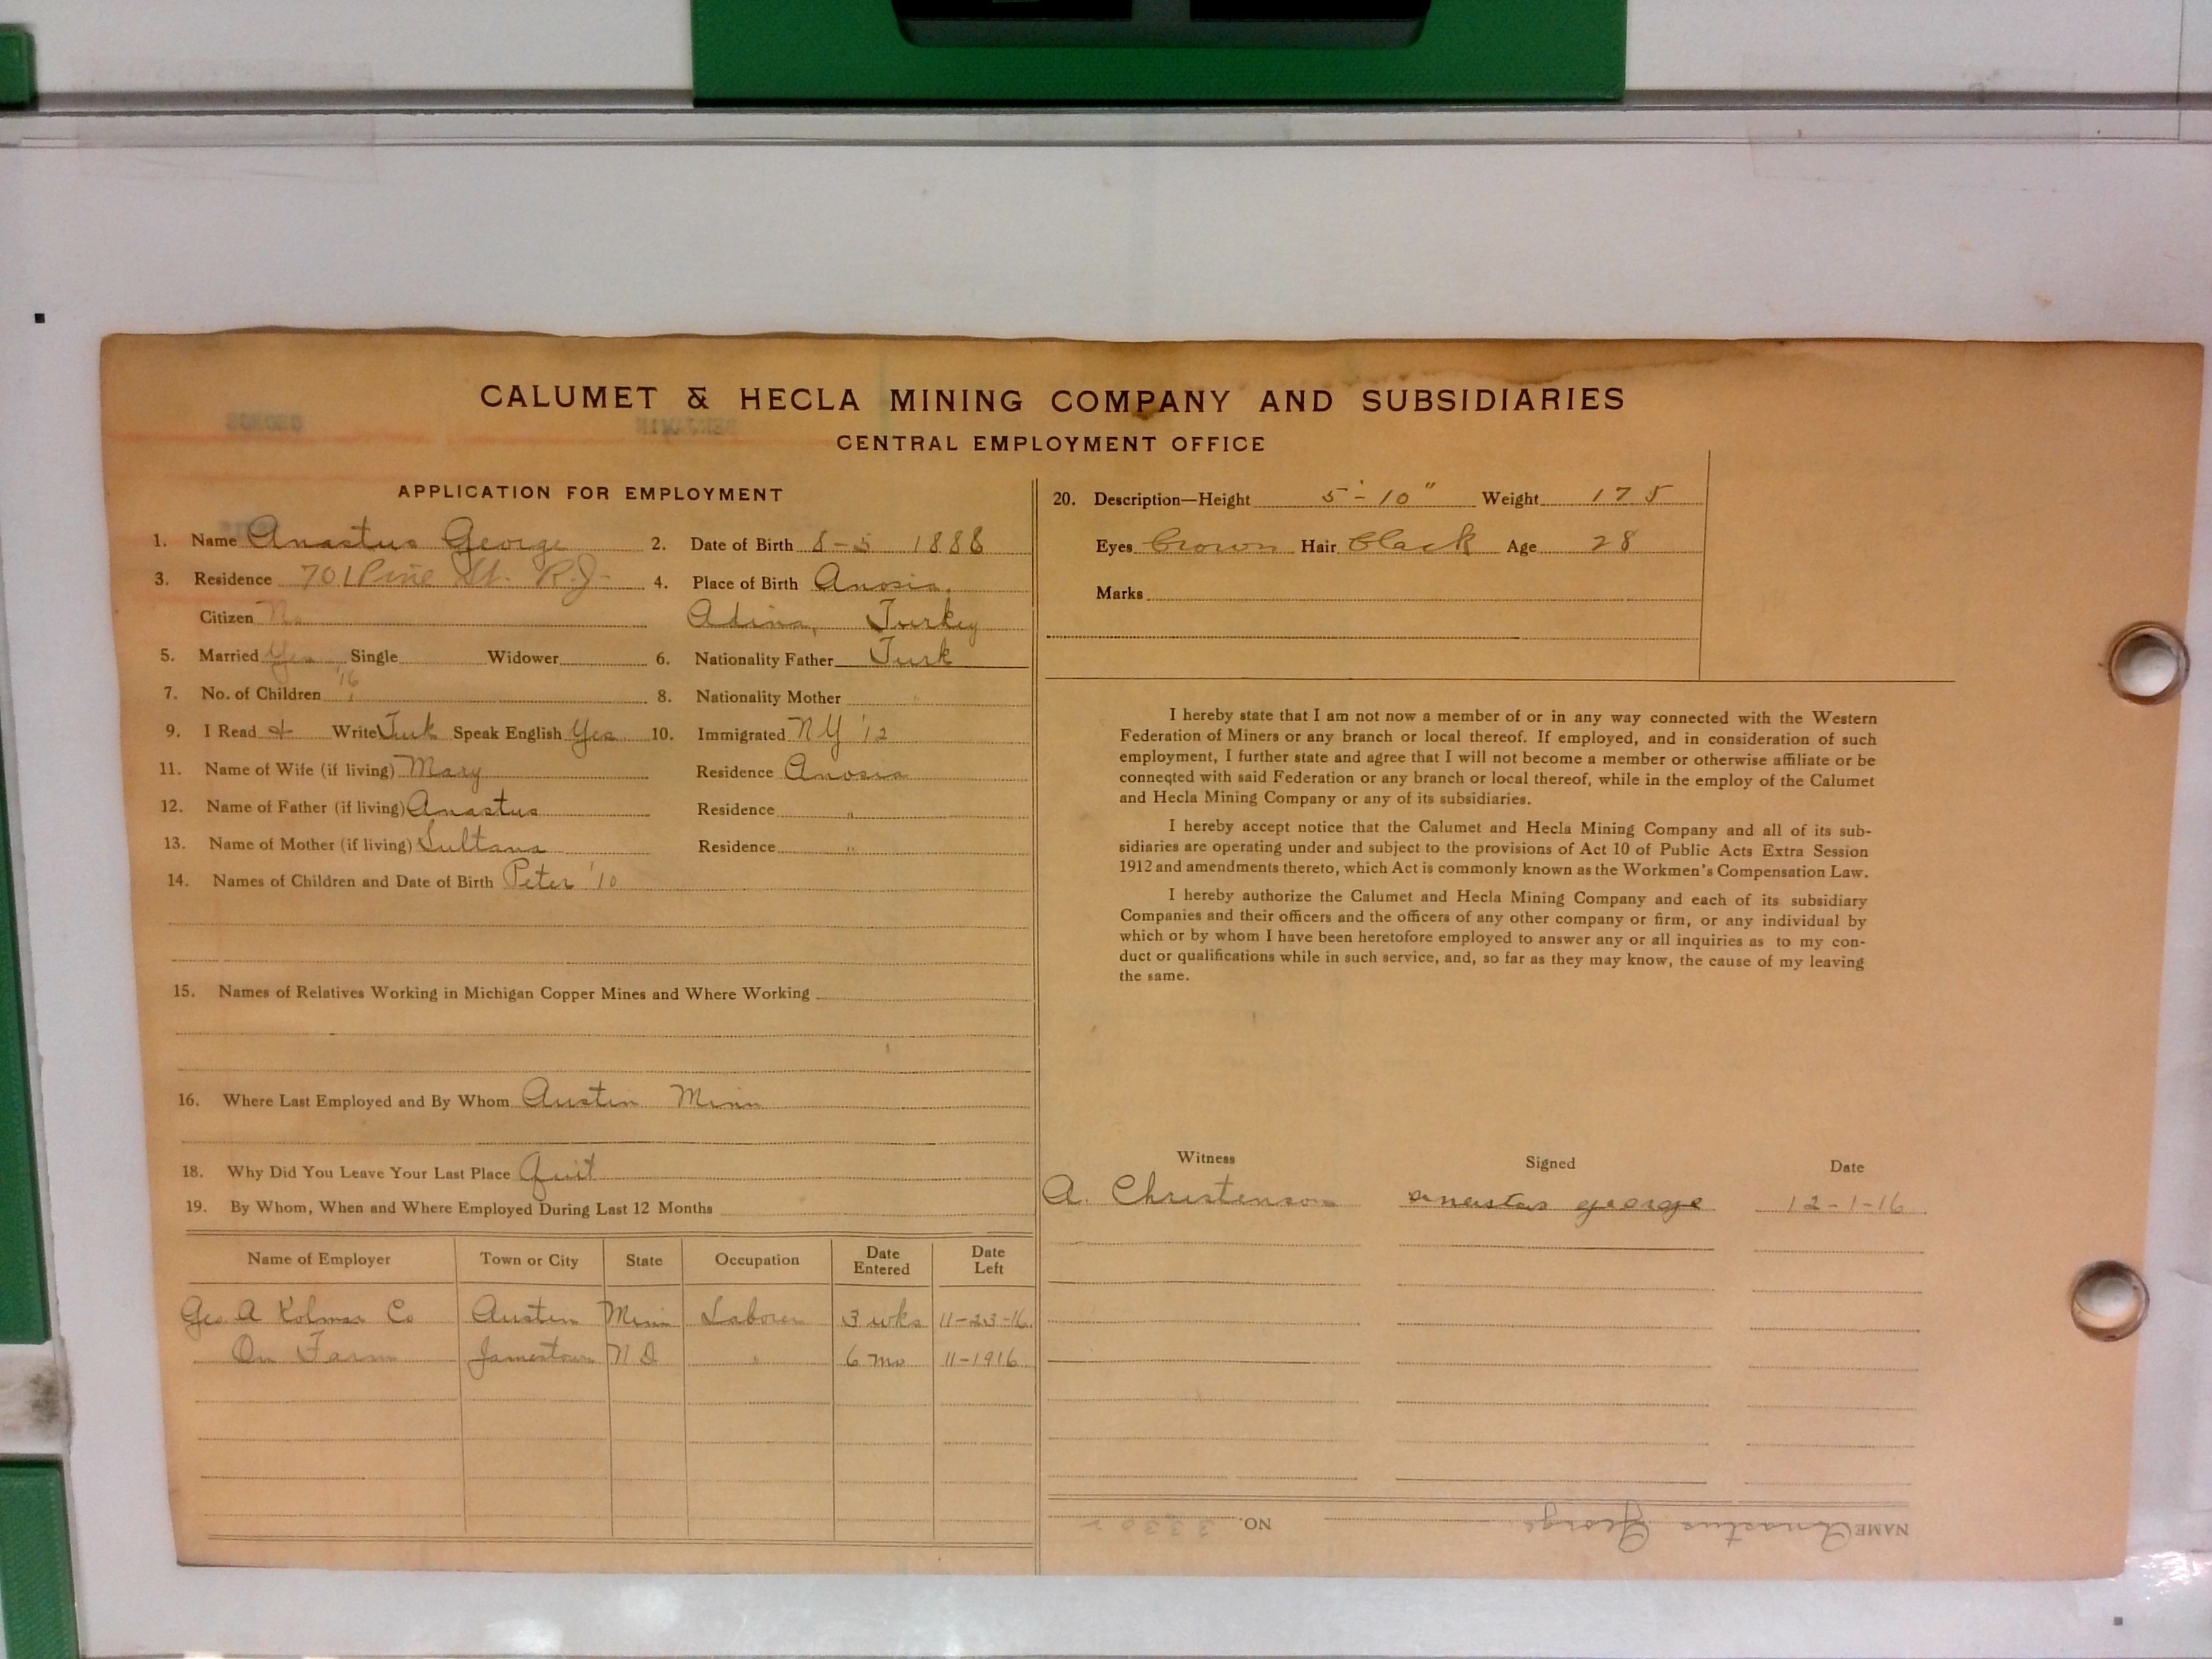 CALUMET & HECLA MINING COMPANY AND SUBSIDIARIES
CENTRAL EMPLOYMENT OFFICE
APPLICATION FOR EMPLOYMENT
1. Name Anastus George 2. Date of Birth 8-5 1888
3. Residence 701 Pine St. R.J. 4. Place of Birth Anosia,
Citizen No Adina, Turkey
5. Married Yes Single Widower 6. Nationality Father Turk
7. No. of Children 8. Nationality Mother "
9. I Read & Write Turk Speak English Yes 10. Immigrated NY '12
11. Name of Wife (if living) Mary Residence Anosia
12. Name of Father (if living) Anastus Residence "
13. Name of Mother (if living) Sultana Residence "
14. Names of Children and Date of Birth Peter '10
15. Names of Relatives Working in Michigan Copper Mines and Where Working
16. Where Last Employed and By Whom Austin Minn
18. Why Did You Leave Your Last Place Quit
19. By Whom, When and Where Employed During Last 12 Months
Name of Employer Town or City State Occupation Date Entered Date Left
Geo A Kolmar Co Austin Minn Laborer 3 wks 11-23-16
On Farm Jamestown N D " 6 mo 11-1916
20. Description—Height 5'-10" Weight 175
Eyes Brown Hair Black Age 28
Marks
I hereby state that I am not now a member of or in any way connected with the Western
Federation of Miners or any branch or local thereof. If employed, and in consideration of such
employment, I further state and agree that I will not become a member or otherwise affiliate or be
conneqted with said Federation or any branch or local thereof, while in the employ of the Calumet
and Hecla Mining Company or any of its subsidiaries.
I hereby accept notice that the Calumet and Hecla Mining Company and all of its sub-
sidiaries are operating under and subject to the provisions of Act 10 of Public Acts Extra Session
1912 and amendments thereto, which Act is commonly known as the Workmen's Compensation Law.
I hereby authorize the Calumet and Hecla Mining Company and each of its subsidiary
Companies and their officers and the officers of any other company or firm, or any individual by
which or by whom I have been heretofore employed to answer any or all inquiries as to my con-
duct or qualifications while in such service, and, so far as they may know, the cause of my leaving
the same.
Witness Signed Date
A. Christenson anastas george 12-1-16
NAME Anastus George NO.